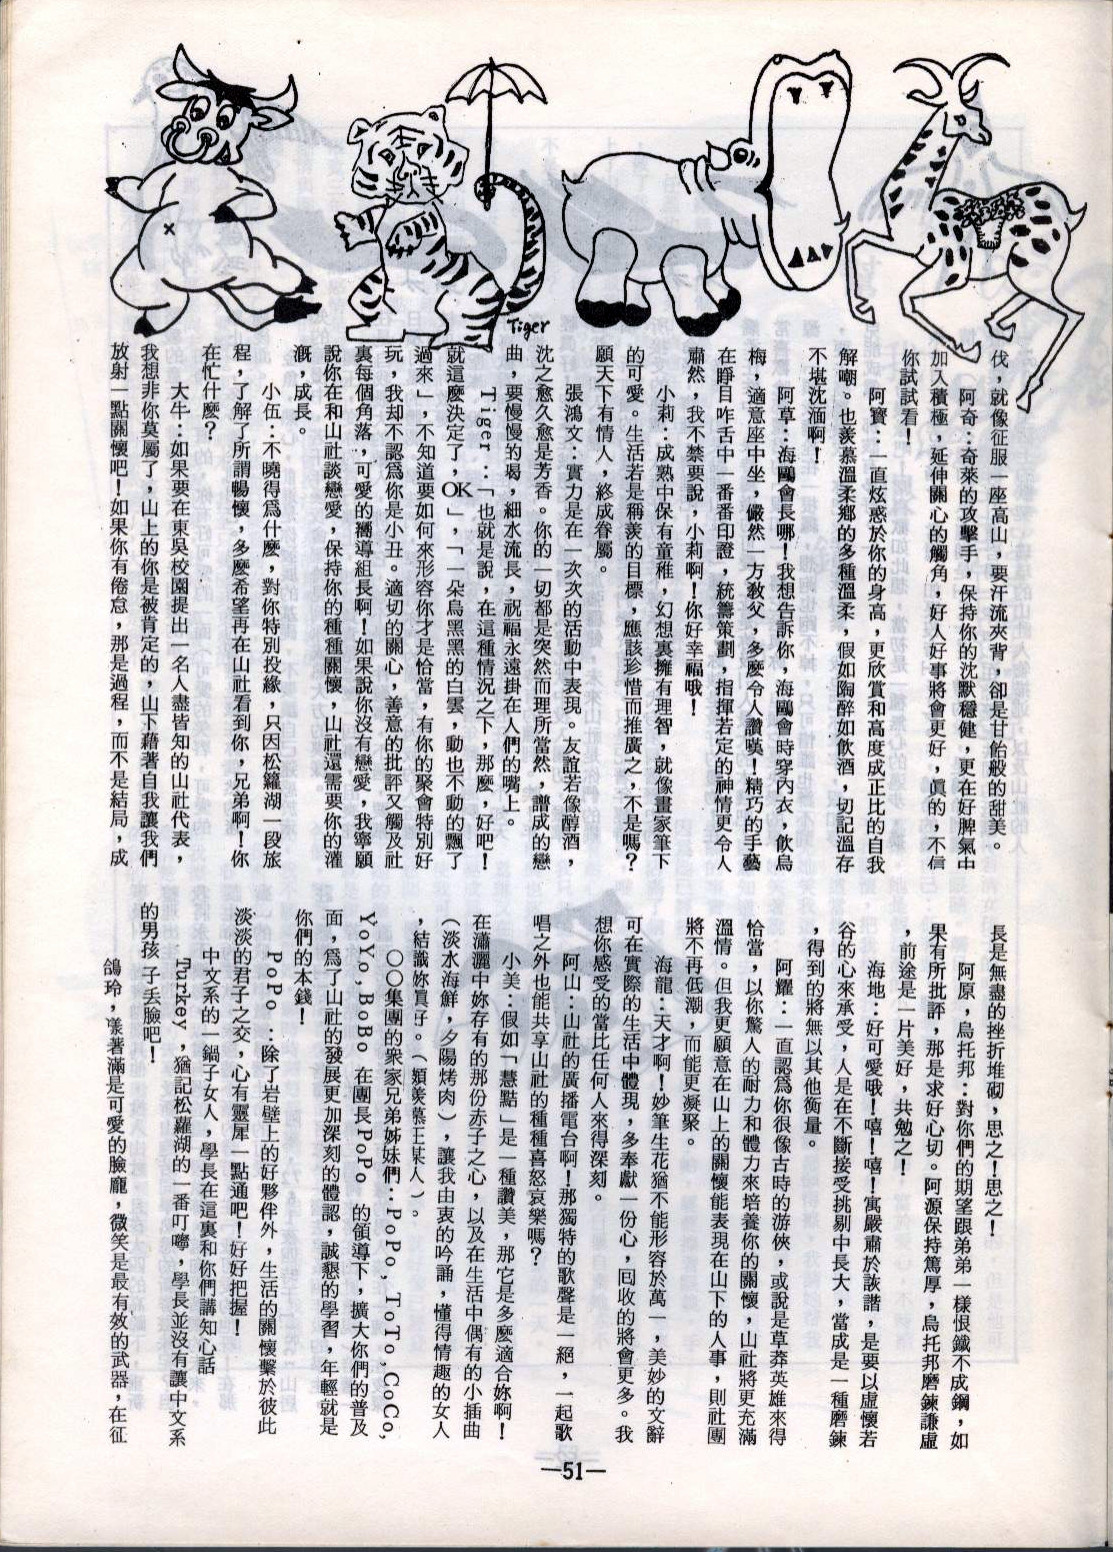 Tiger
伐，就像征服一座高山，要汗流夾背，卻是甘飴般的甜美。
阿奇：奇萊的攻擊手，保持你的沈默穩健，更在好脾氣中
加入積極，延伸關心的觸角，好人好事將會更好，眞的，不信
你試試看！
阿寶：一直炫惑於你的身高，更欣賞和高度成正比的自我
解嘲。也羨慕溫柔鄉的多種溫柔，假如陶醉如飲酒，切記溫存
不堪沈湎啊！
阿草：海鷗會長哪！我想告訴你，海鷗會時穿內衣，飲烏
梅，適意座中坐，儼然一方教父，多麽令人讚嘆！精巧的手藝
在睜目咋舌中一番番印證，統籌策劃，指揮若定的神情更令人
肅然，我不禁要說，小莉啊！你好幸福哦！
小莉：成熟中保有童稚，幻想裏擁有理智，就像畫家筆下
的可愛。生活若是稱羨的目標，應該珍惜而推廣之，不是嗎？
願天下有情人，終成眷屬。
張鴻文：實力是在一次次的活動中表現。友誼若像醇酒，
沈之愈久愈是芳香。你的一切都是突然而理所當然，譜成的戀
曲，要慢慢的喝，細水流長，祝福永遠掛在人們的嘴上。
Tiger：「也就是說，在這種情況之下，那麽，好吧！
就這麽決定了，OK」，「一朵烏黑黑的白雲，動也不動的飄了
過來」，不知道要如何來形容你才是恰當，有你的聚會特別好
玩，我却不認爲你是小丑。適切的關心，善意的批評又觸及社
裏每個角落，可愛的嚮導組長啊！如果說你沒有戀愛，我寧願
說你在和山社談戀愛，保持你的種種關懷，山社還需要你的灌
漑，成長。
小伍：不曉得爲什麽，對你特別投緣，只因松籮湖一段旅
程，了解了所謂暢懷，多麽希望再在山社看到你，兄弟啊！你
在忙什麽？
大牛：如果要在東吳校園提出一名人盡皆知的山社代表，
我想非你莫屬了，山上的你是被肯定的，山下藉著自我讓我們
放射一點關懷吧！如果你有倦怠，那是過程，而不是結局，成
長是無盡的挫折堆砌，思之！思之！
阿原，烏托邦：對你們的期望跟弟弟一樣恨鐵不成鋼，如
果有所批評，那是求好心切。阿源保持篤厚，烏托邦磨鍊謙虛
，前途是一片美好，共勉之！
海地：好可愛哦！嘻！嘻！寓嚴肅於詼諧，是要以虛懷若
谷的心來承受，人是在不斷接受挑剔中長大，當成是一種磨鍊
，得到的將無以其他衡量。
阿耀：一直認爲你很像古時的游俠，或說是草莽英雄來得
恰當，以你驚人的耐力和體力來培養你的關懷，山社將更充滿
溫情。但我更願意在山上的關懷能表現在山下的人事，則社團
將不再低潮，而能更凝聚。
海龍：天才啊！妙筆生花猶不能形容於萬一，美妙的文辭
可在實際的生活中體現，多奉獻一份心，囘收的將會更多。我
想你感受的當比任何人來得深刻。
阿山：山社的廣播電台啊！那獨特的歌聲是一絕，一起歌
唱之外也能共享山社的種種喜怒哀樂嗎？
小美：假如「慧點」是一種讚美，那它是多麽適合妳啊！
在瀟灑中妳存有的那份赤子之心，以及在生活中偶有的小插曲
（淡水海鮮，夕陽烤肉），讓我由衷的吟誦，懂得情趣的女人
，結識妳眞好。（頗羨慕王某人）。
○○集團的衆家兄弟姊妹們：PoPo，ToTo，CoCo，
YoYo，BoBo 在團長PoPo 的領導下，擴大你們的普及
面，爲了山社的發展更加深刻的體認，誠懇的學習，年輕就是
你們的本錢！
PoPo ：除了岩壁上的好夥伴外，生活的關懷繫於彼此
淡淡的君子之交，心有靈犀一點通吧！好好把握！
中文系的一鍋子女人，學長在這裏和你們講知心話
Turkey，猶記松蘿湖的一番叮嚀，學長並沒有讓中文系
的男孩子丟臉吧！
鴿玲，漾著滿是可愛的臉龐，微笑是最有效的武器，在征
—51—